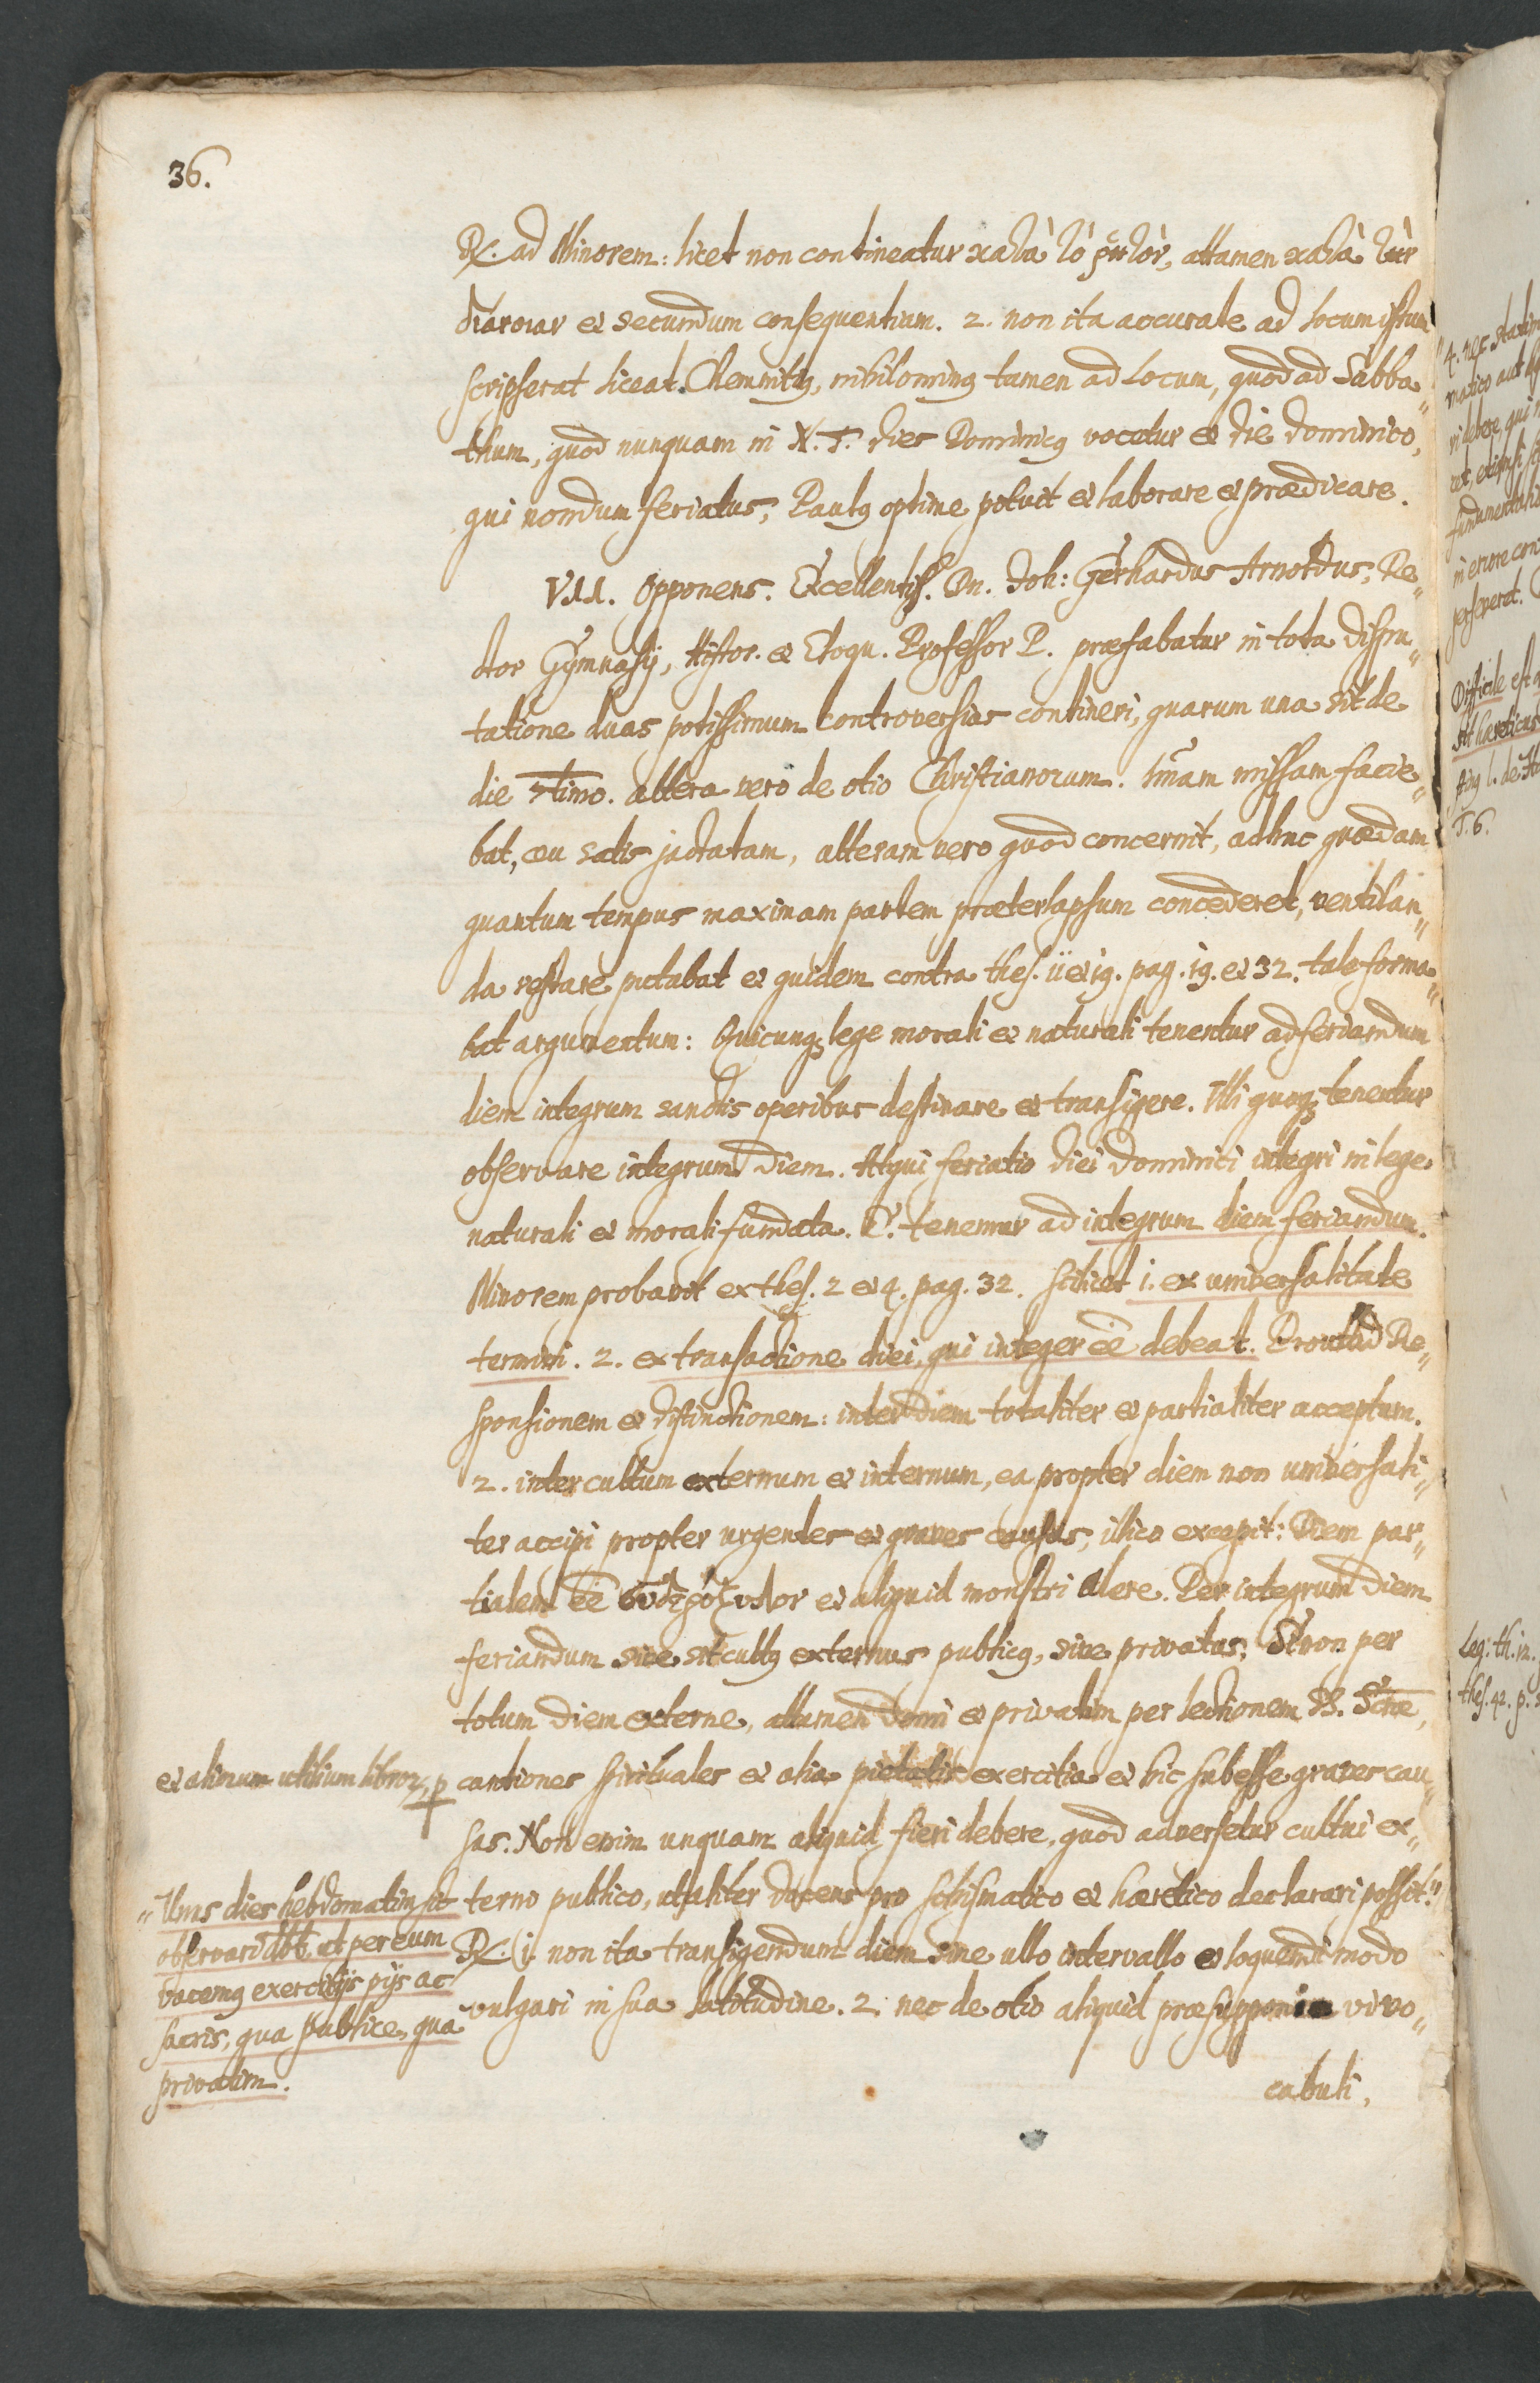 36.
R. ad Minorem: licet non contineatur κατὰ τὸ ῥητὸν, attamen κατὰ τὴν
διάνοιαν et secundum consequentiam. 2. non ita accurate ad locum istum
scripserat liceat Chemnitius, nihilominus tamen ad Locum, quod ad Sabba„
thum, quod nunquam in N. T. dies Dominicus vocatur et die dominico,
qui nondum feriatus, Paulus optime potuit et laborare et prædicare.
VII. Opponens. Excellentiss. Dn. Joh: Gerhardus Arnoldus, Re„
ctor Gymnasij, Histor. et Eloqu. Professor P. præfabatur in tota dispu„
tatione duas potissimum controversias contineri, quarum una sit de
die 7timo. altera vero de otio Christianorum. Imam missam facie„
bat, ceu satis jactatam, alteram vero quod concernit, adhuc quædam
quantum tempus maximam partem præterlapsum concederet, ventilan„
da restare putabat et quidem contra thes. ii et 19. pag. 19. et 32. tale forma„
bat argumentum: Quicunque lege morali et naturali tenentur ad feriandum
diem integrum sanctis operibus destinare et transigere. Illi quoque tenentur
observare integrum diem. Atqui feriatio diei dominici integri in lege
naturali et morali fundata. E. tenemur ad integrum diem feriandum.
Minorem probavit ex thes. 2 et 4. pag. 32. scilicet i. ex universalitate
termini. 2. ex transactione diei, qui integer eē debeat. Re„
sponsionem et distinctionem: inter diem totaliter et partialiter acceptum.
2. inter cultum externum et internum, ea propter diem non universali„
ter accipi propter urgentes et graves causas, illico excepit: Diem par„
tialem eē et aliquid monstri alere. Per integrum diem
feriandum sive sit cultus externus publicus, sive privatus; Si non per
totum diem externe, attamen domi et privatim per lectionem S. Scræ,
et aliorum utilium librorum, p
cantiones spirituales et alia pietatis exercitia et hic subesse graves cau„
sas. Non enim unquam aliquid fieri debere, quod adversetur cultui ex„
terno publico, ut aliter docens pro schismatico et hæretico declarari possit."
R. (i. non ita transigendum diem sine ullo intervallo et loquendi modo
vulgari in sua latitudine. 2. nec de otio aliquid præsupponi vi vo„
cabuli,
„Unus dies hebdomatim sit
observand9 et per eum
vacemus exercitijs pijs ac
sacris, qua publice, qua
privatim.